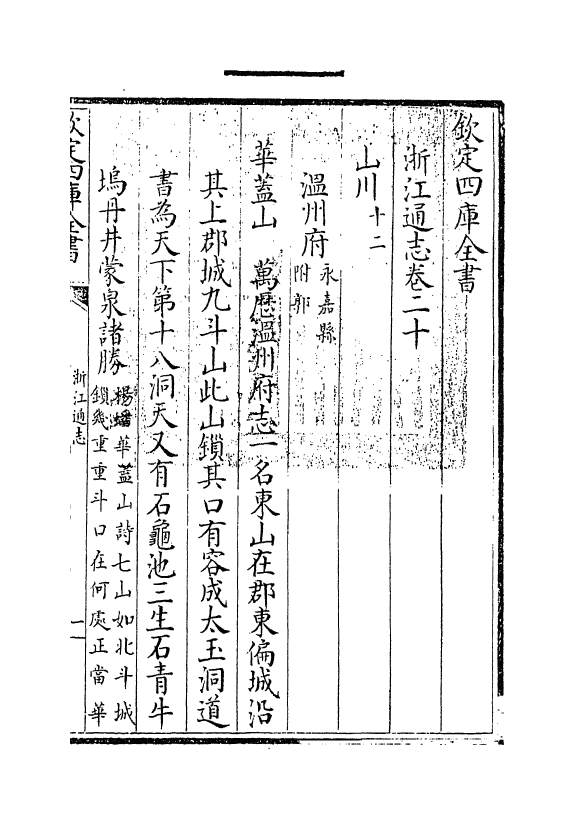 欽定四庫全書
浙江通志卷二十
山川十二
溫州府永嘉縣
附郭
華蓋山 萬歷溫州府志一名東山在郡東偏城沿
其上郡城九斗山此山鎖其口有容成太玉洞道
書為天下第十八洞天又有石龜池三生石青牛
塢丹井蒙泉諸勝楊蟠華蓋山詩七山如北斗城
鎖幾重重斗口在何處正當華
欽定四庫全書
浙江通志
一